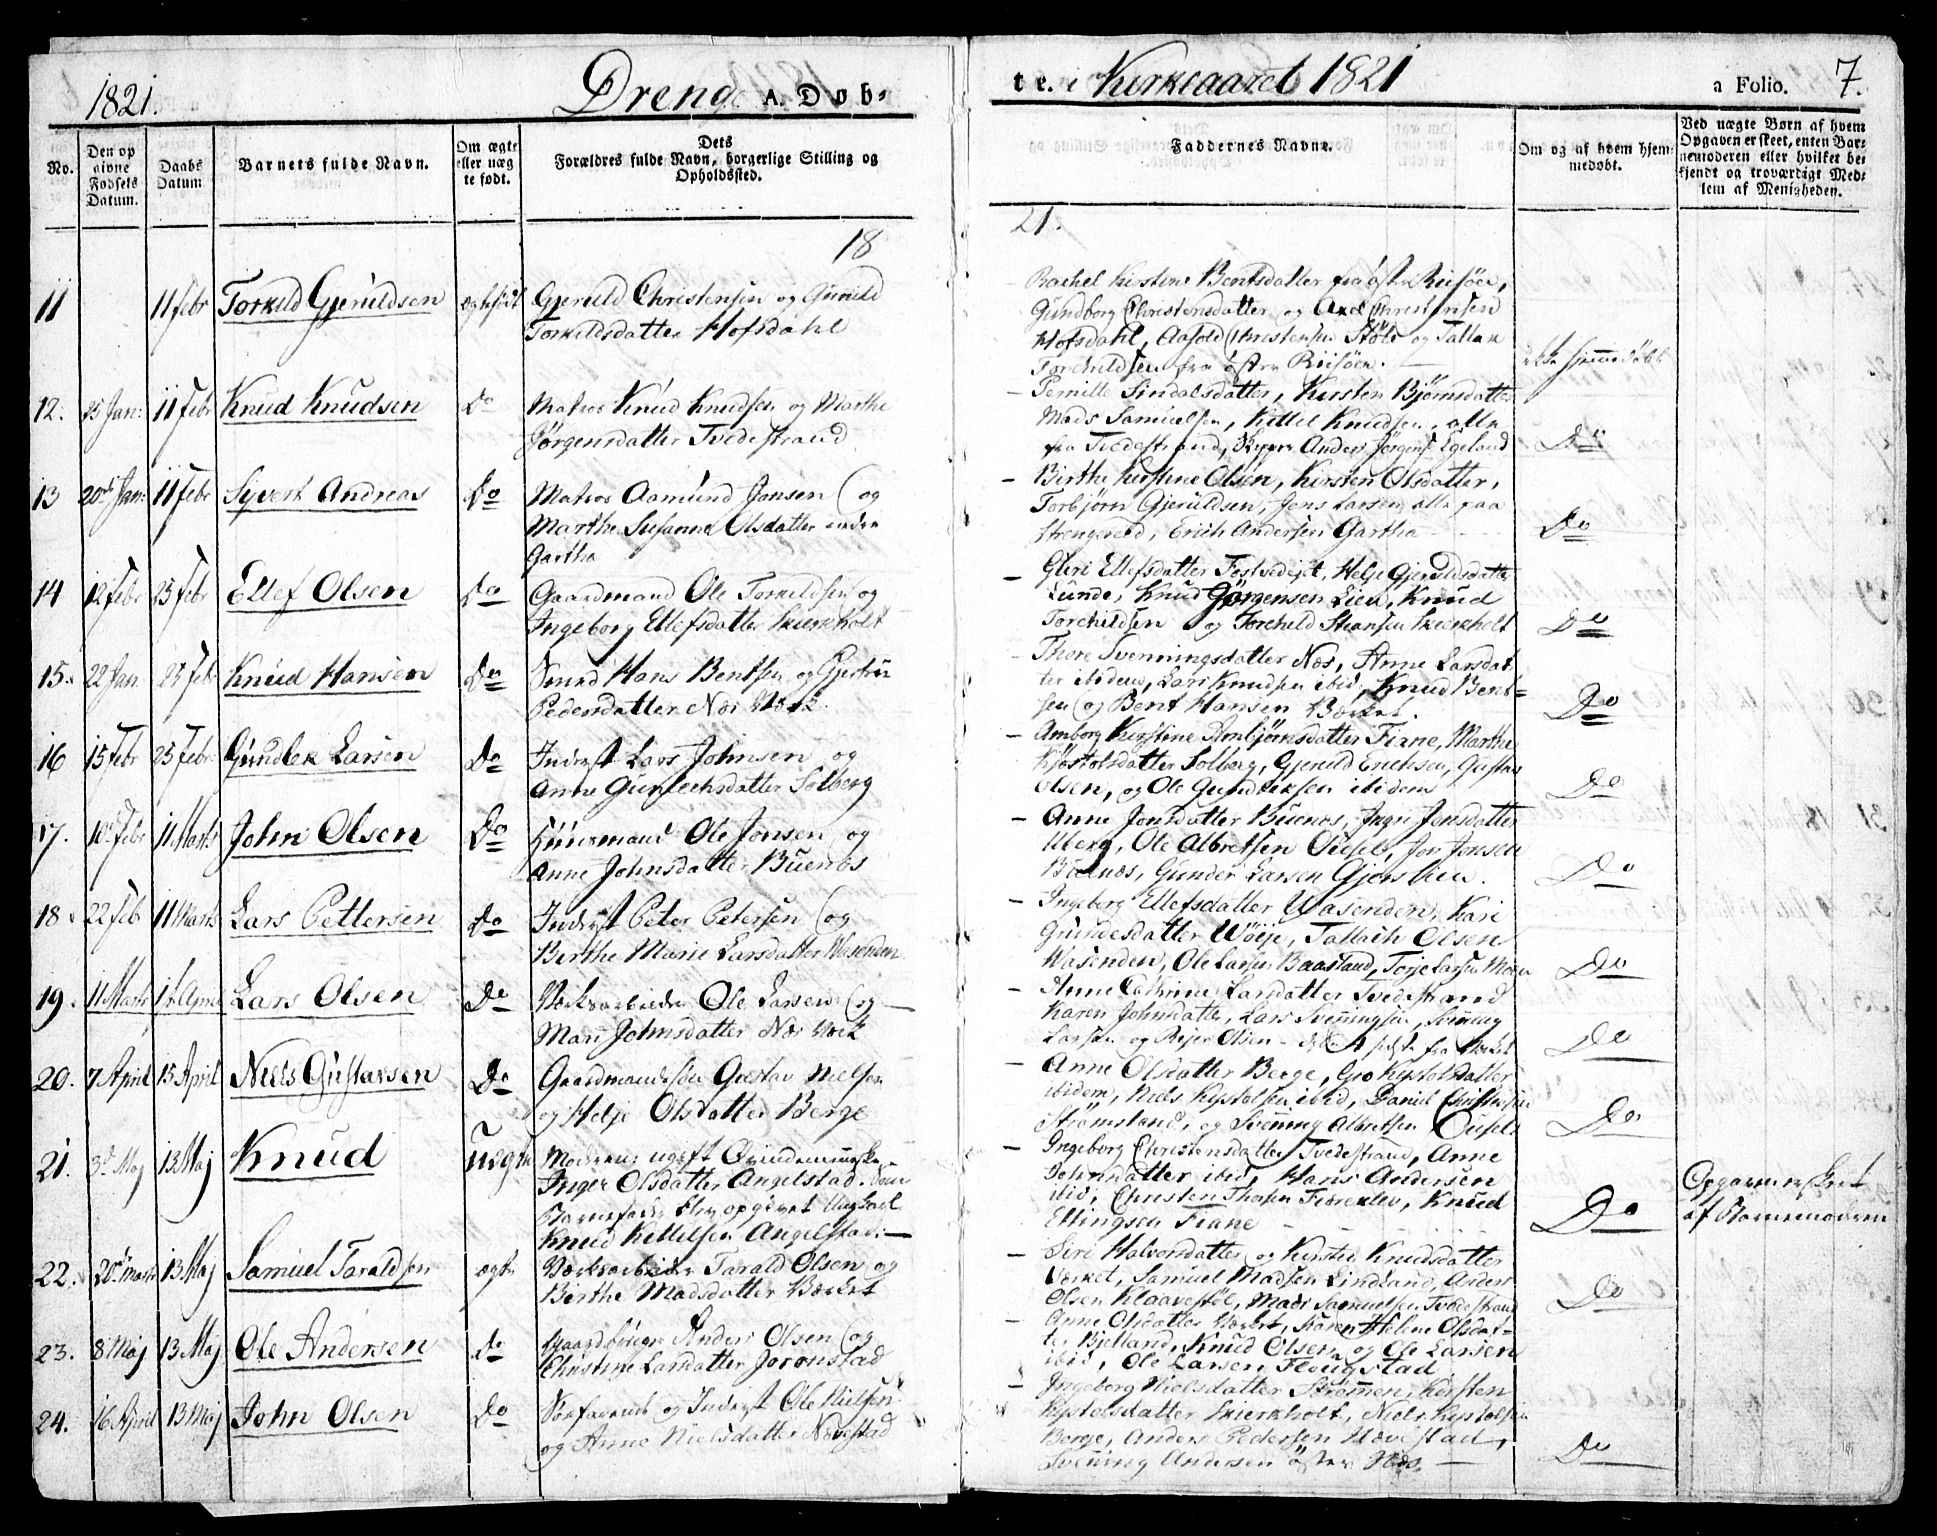 1821.
Drenge A. Døb-
te. i Kirkeaaret 1821
a Folio. 7.
No.
Den op
givne
Fødsels
Datum.
Daabs
Datum
Barnets fulde Navn.
Om ægte
eller uæg
te født.
Dets
Forældres fulde Navn, borgerlige Stilling og
Opholdssted.
Faddernes Navne.
Om og af hvem hjem-
medøbt.
Ved uægte Børn af hvem
Opgaven er skeet, enten Bar-
nemoderen eller hvilket be-
kjendt og troværdigt Med-
lem af Menigheden.
18
21.
11
11 Febr
Torkild Gjeruldsen
ægtefødt
Gjeruld Christensen og Gunild
Torkildsdatter Hofsdahl
Rachel Kirstine Bentsdatter fra øster Riisøer,
Gundborg Christensdatter og Axel Christensen
Hofsdahl, Aasold Christensen Støle og Tallak
Torchildsen fra østre Riisøer.
ikke hjemmedøbt
12. 25 Jan: 11 Febr
Knud Knudsen
Do
Matros Knud Knudsen og Marthe
Jørgensdatter Tvedestrand
– Pernille Sindalsdatter, Kirsten Bjørnsdatter
Mads Samuelsen, Kittel Knudsen, alle
fra Tvedestrand, Anders Jørgens. Egeland
Do
13 20de Jan: 11 Febr
Syvert Andreas
Do
Matros Aamund Jonsen og
Marthe Susanna Olsdatter
Gartha
– Birthe Kirstine Olsen, Kirsten Olsdatter,
Torbjørn Gjeruldsen, Jens Larsen alle paa
Strengereid, Erich Andersen Gartha
Do
14 12 Febr 25 Febr
Ellef Olsen
Do
Gaardmand Ole Torkildsen og
Ingeborg Ellefsdatter Skierkholt
– Guri Ellefsdatter, Helje Gjeruldsdatter
Lunde, Knud Jørgensen Lien, Knud
Torchildsen og Torchild Skierkholt
Do
15. 22 Jan 25 Feb
Knud Hansen
Do
Smed Hans Bentsen og Gjertru
Pedersdatter Næs Værk.
– Thore Svenningsdatter Næs, Anne Larsdat-
ter ibidem, Lars Knudsen ibid, Knud Bent-
sen og Bent Hansen Værket.
Do
16 15 Febr 25 Febr
Gundlek Larsen
Do
Inderst Lars Johnsen og
Anne Gunlechsdatter Solberg
– Amborg Kirstine Fiane, Marthe
Kjøstolsdatter Solberg, Gjeruld Erichsen,
Olsen, og Ole Gundleksen ibidem
Do
17. 10de Febr 11 Marts
John Olsen
Do
Huusmand Ole Jonsen og
Anne Johnsdatter Buenos
– Anne Jonsdatter Buenos, Ingri Jonsdatter
Uberg, Ole Albretsen Ousel, Jon Jonsen
Buenæs, Gunder Larsen
Do
18. 22 Feb 11 Marts
Lars Pettersen
Do
Inderst Peter Petersen og
Berthe Marie Larsdatter Wasenden
– Ingeborg Ellefsdatter Wasenden, Kari
Gundesdatter Wöije, Tallach Olsen
Wasenden, Ole Larsen Baasland, Torje Larsen
Do
19. 11 Marts
Lars Olsen
Do
Værksarbeider Ole Larsen og –
Mari Johnsdatter Næs Værk
– Anne Cathrine Larsdatter Tvedestrand
Karen Johnsdatter, Lars Svenningsen, Svenning
Larsen og Reier Olsen – fra Værket
Do
20. 7 April 15 April
Niels Gustavsen
Do
Gaardmandssøn Gustav Nielsen
og Helje Olsdatter Berge
– Anne Olsdatter Berge, Gro Kystolsdatter
ibidem, Niels Kystolsen ibid, Daniel Christensen
Strømsland, og Svenning Albretsen Ousel
Do
21. 3de Maj 13 Maj
Knud
uægte
Moderen: ugift Qvindemenneske
Inger Olsdatter Angelstad. Som
Barnefader blev opgivet Ungkarl
Knud Kittelsen Angelstad: –
– Ingeborg Christensdatter Tvedestrand, Anne
Johnsdatter ibid, Hans Andersen
ibid, Christen Thorsen Fiereklev, Knud
Ellingsen Fiane
Do
Opgaven er skeet
af Barnemoderen
22. 20de Marts 13 Maj
Samuel Taraldsen
ægte
Værksarbeider Tarald Olsen og
Berthe Madsdatter Værket
– Siri Halvorsdatter og Kirsten Knudsdatter
Værket, Samuel Madsen Lindland, Anders
Olsen Klaavestøl, Mads Samuelsen Tvedestrand
Do
23. 8 Maj 13 Maj
Ole Andersen
do
Gaardbruger Anders Olsen og
Christine Larsdatter Joronstad
– Anne Olsdatter Værket, Karen Helene Olsdat-
ter Bjelland, Knud Olsen og Ole Larsen
ibid, Ole Larsen
24. 16 April 13 Maj
John Olsen
Do
Søefarende og Inderst Ole Nielsen
og Anne Nielsdatter Nævestad
– Ingeborg Nielsdatter Strømmen, Kirsten
Kystolsdatter Skierkholt, Niels Kystolsen
Berge, Anders Pedersen Nævestad,
Svenning Andersen øster Næs –
Do